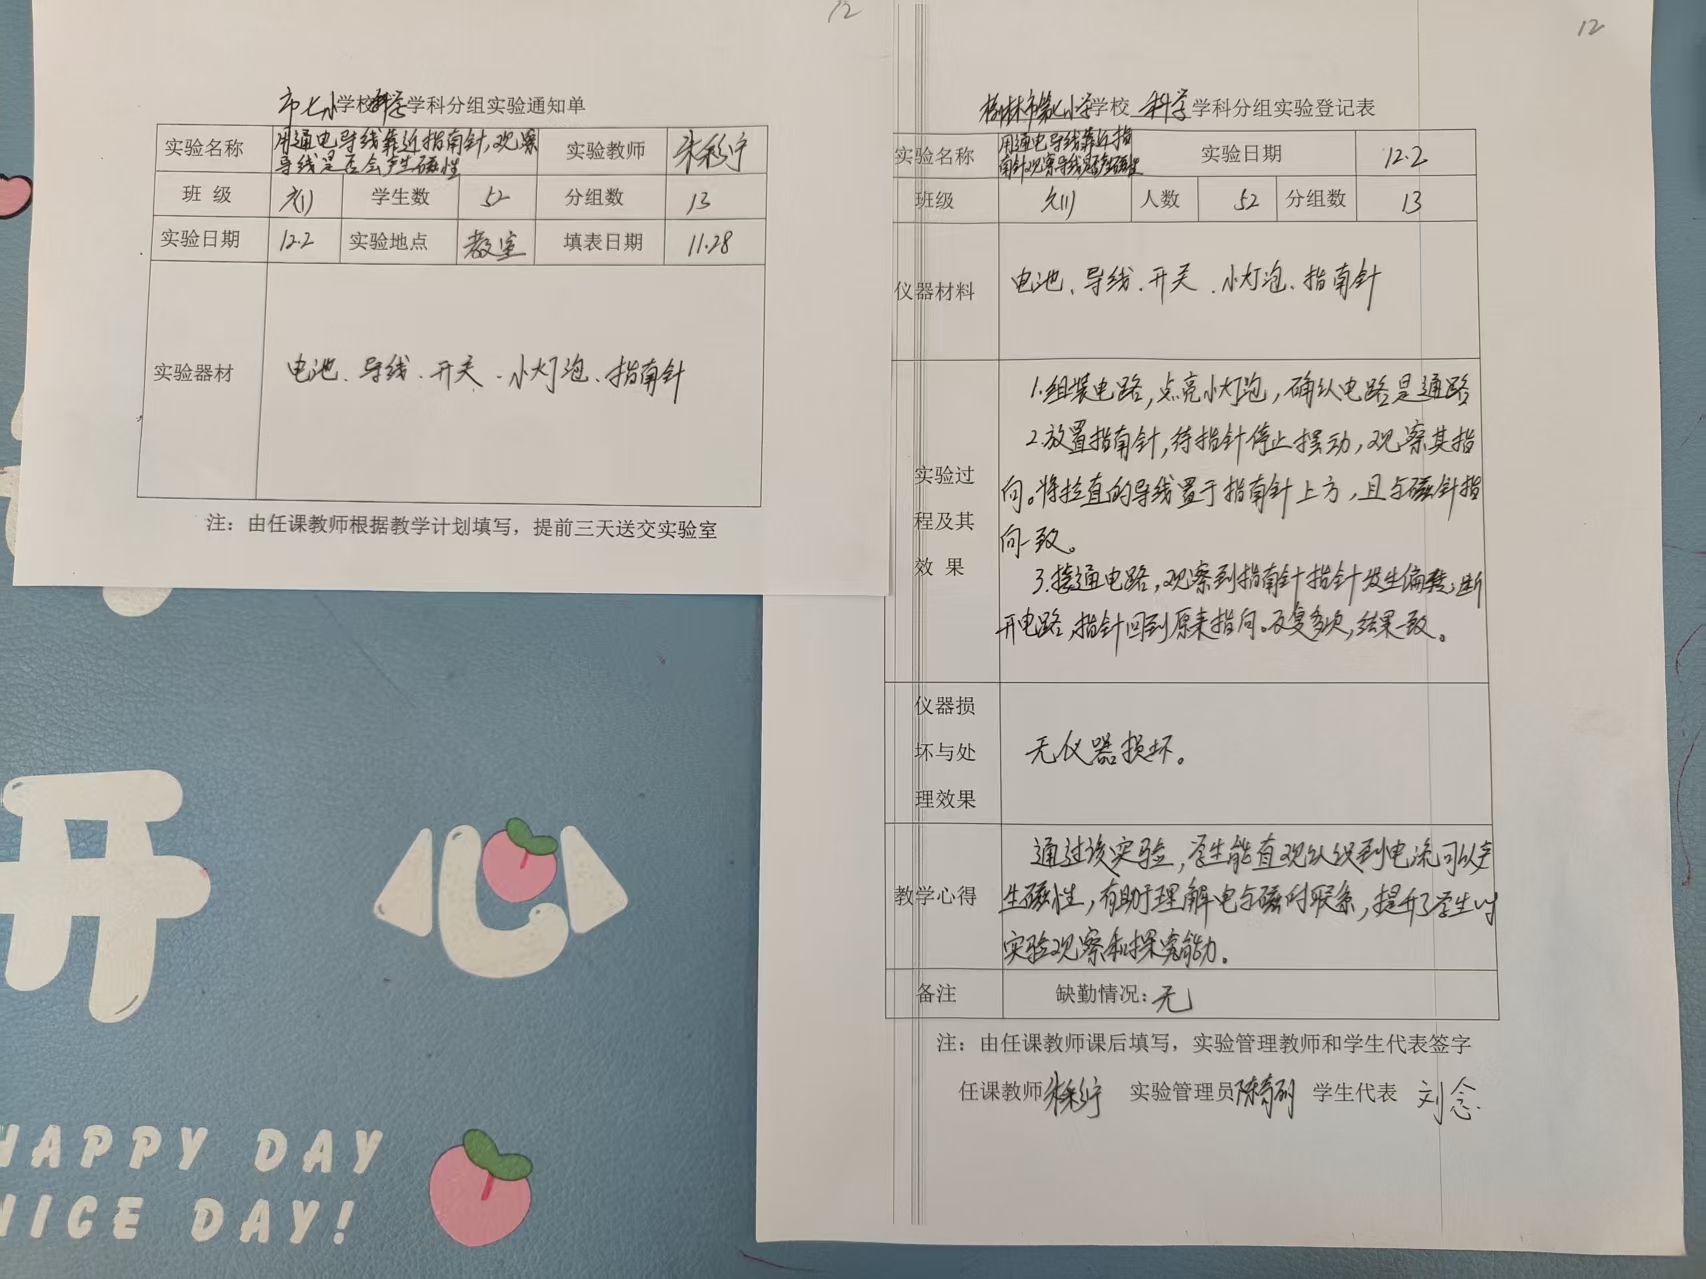 12
市七小学校科学学科分组实验通知单
实验名称 用通电导线靠近指南针,观察 实验教师
导线是否会产生磁性
班 级 六(1) 学生数 52 分组数 13
实验日期 12.2 实验地点 教室 填表日期 11.28
实验器材 电池、导线、开关、小灯泡、指南针
注：由任课教师根据教学计划填写，提前三天送交实验室
12
榆林市第七小学学校 科学 学科分组实验登记表
实验名称 用通电导线靠近指 实验日期 12.2
南针观察导线是否产生磁性
班级 六(1) 人数 52 分组数 13
仪器材料 电池、导线、开关、小灯泡、指南针
实验过
程及其
效 果
1.组装电路,点亮小灯泡,确认电路是通路
2.放置指南针,待指针停止摆动,观察其指
向。将拉直的导线置于指南针上方,且与磁针指
向一致。
3.接通电路,观察到指南针指针发生偏转;断
开电路,指针回到原来指向。反复多次,结果一致。
仪器损
坏与处
理效果
无仪器损坏。
教学心得
通过该实验,学生能直观认识到电流可以产
生磁性,有助于理解电与磁的联系,提升了学生的
实验观察和探究能力。
备注 缺勤情况:无
注：由任课教师课后填写，实验管理教师和学生代表签字
任课教师 实验管理员 学生代表 刘念
开心
HAPPY DAY
NICE DAY!